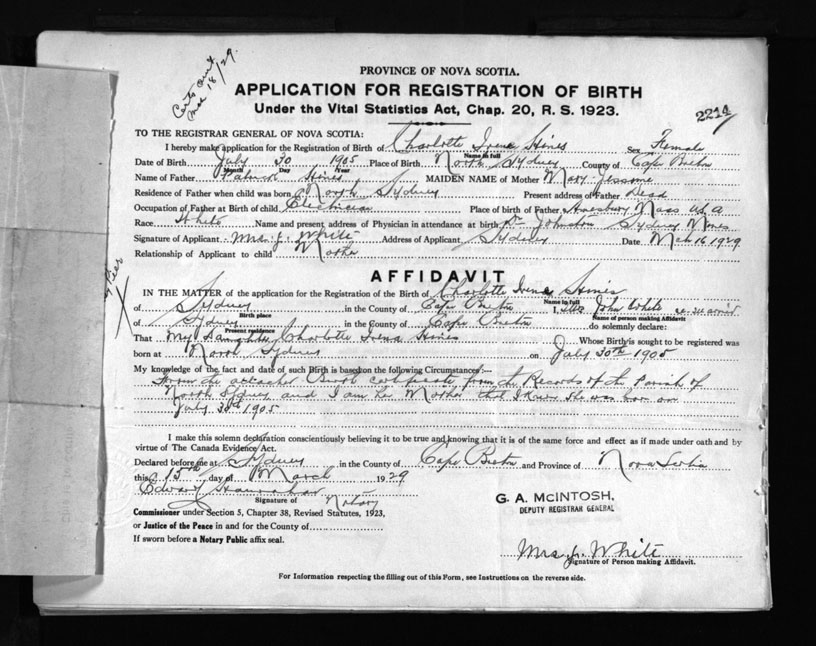 Certs out
Mar 18/29.
PROVINCE OF NOVA SCOTIA.
APPLICATION FOR REGISTRATION OF BIRTH
Under the Vital Statistics Act, Chap. 20, R. S. 1923.
2214
TO THE REGISTRAR GENERAL OF NOVA SCOTIA:
I hereby make application for the Registration of Birth of Charlotte Irena Hines Sex Female
Name in full
Date of Birth July 30 1905 Place of Birth North Sydney County of Cape Breton
Month Day Year
Name of Father Patrick Hines MAIDEN NAME of Mother Mary Jessome
Residence of Father when child was born North Sydney Present address of Father Dead
Occupation of Father at Birth of child Electrician Place of birth of Father Mass USA
Race White Name and present address of Physician in attendance at birth Dr Johnston Sydney Mines
Signature of Applicant Mrs. J. White Address of Applicant Sydney Date Mch 16 1929
Relationship of Applicant to child Mother
AFFIDAVIT
IN THE MATTER of the application for the Registration of the Birth of Charlotte Irena Hines
Name in full
of Sydney in the County of Cape Breton I, Mrs John White
Birth place Name of person making Affidavit
of Sydney in the County of Cape Breton do solemnly declare:
Present residence
That my daughter Charlotte Irena Hines Whose Birth is sought to be registered was
born at North Sydney on July 30th 1905
My knowledge of the fact and date of such Birth is based on the following Circumstances:—
From the attached Birth certificate from the Records of the Parish of
North Sydney and I am her Mother that I know she was born on
July 30th 1905
I make this solemn declaration conscientiously believing it to be true and knowing that it is of the same force and effect as if made under oath and by
virtue of The Canada Evidence Act.
Declared before me at Sydney in the County of Cape Breton and Province of Nova Scotia
this 15th day of March 1929
Edward
Signature of Notary
G. A. McINTOSH,
DEPUTY REGISTRAR GENERAL
Commissioner under Section 5, Chapter 38, Revised Statutes, 1923,
or Justice of the Peace in and for the County of
If sworn before a Notary Public affix seal.
Mrs. J. White
Signature of Person making Affidavit.
For Information respecting the filling out of this Form, see Instructions on the reverse side.